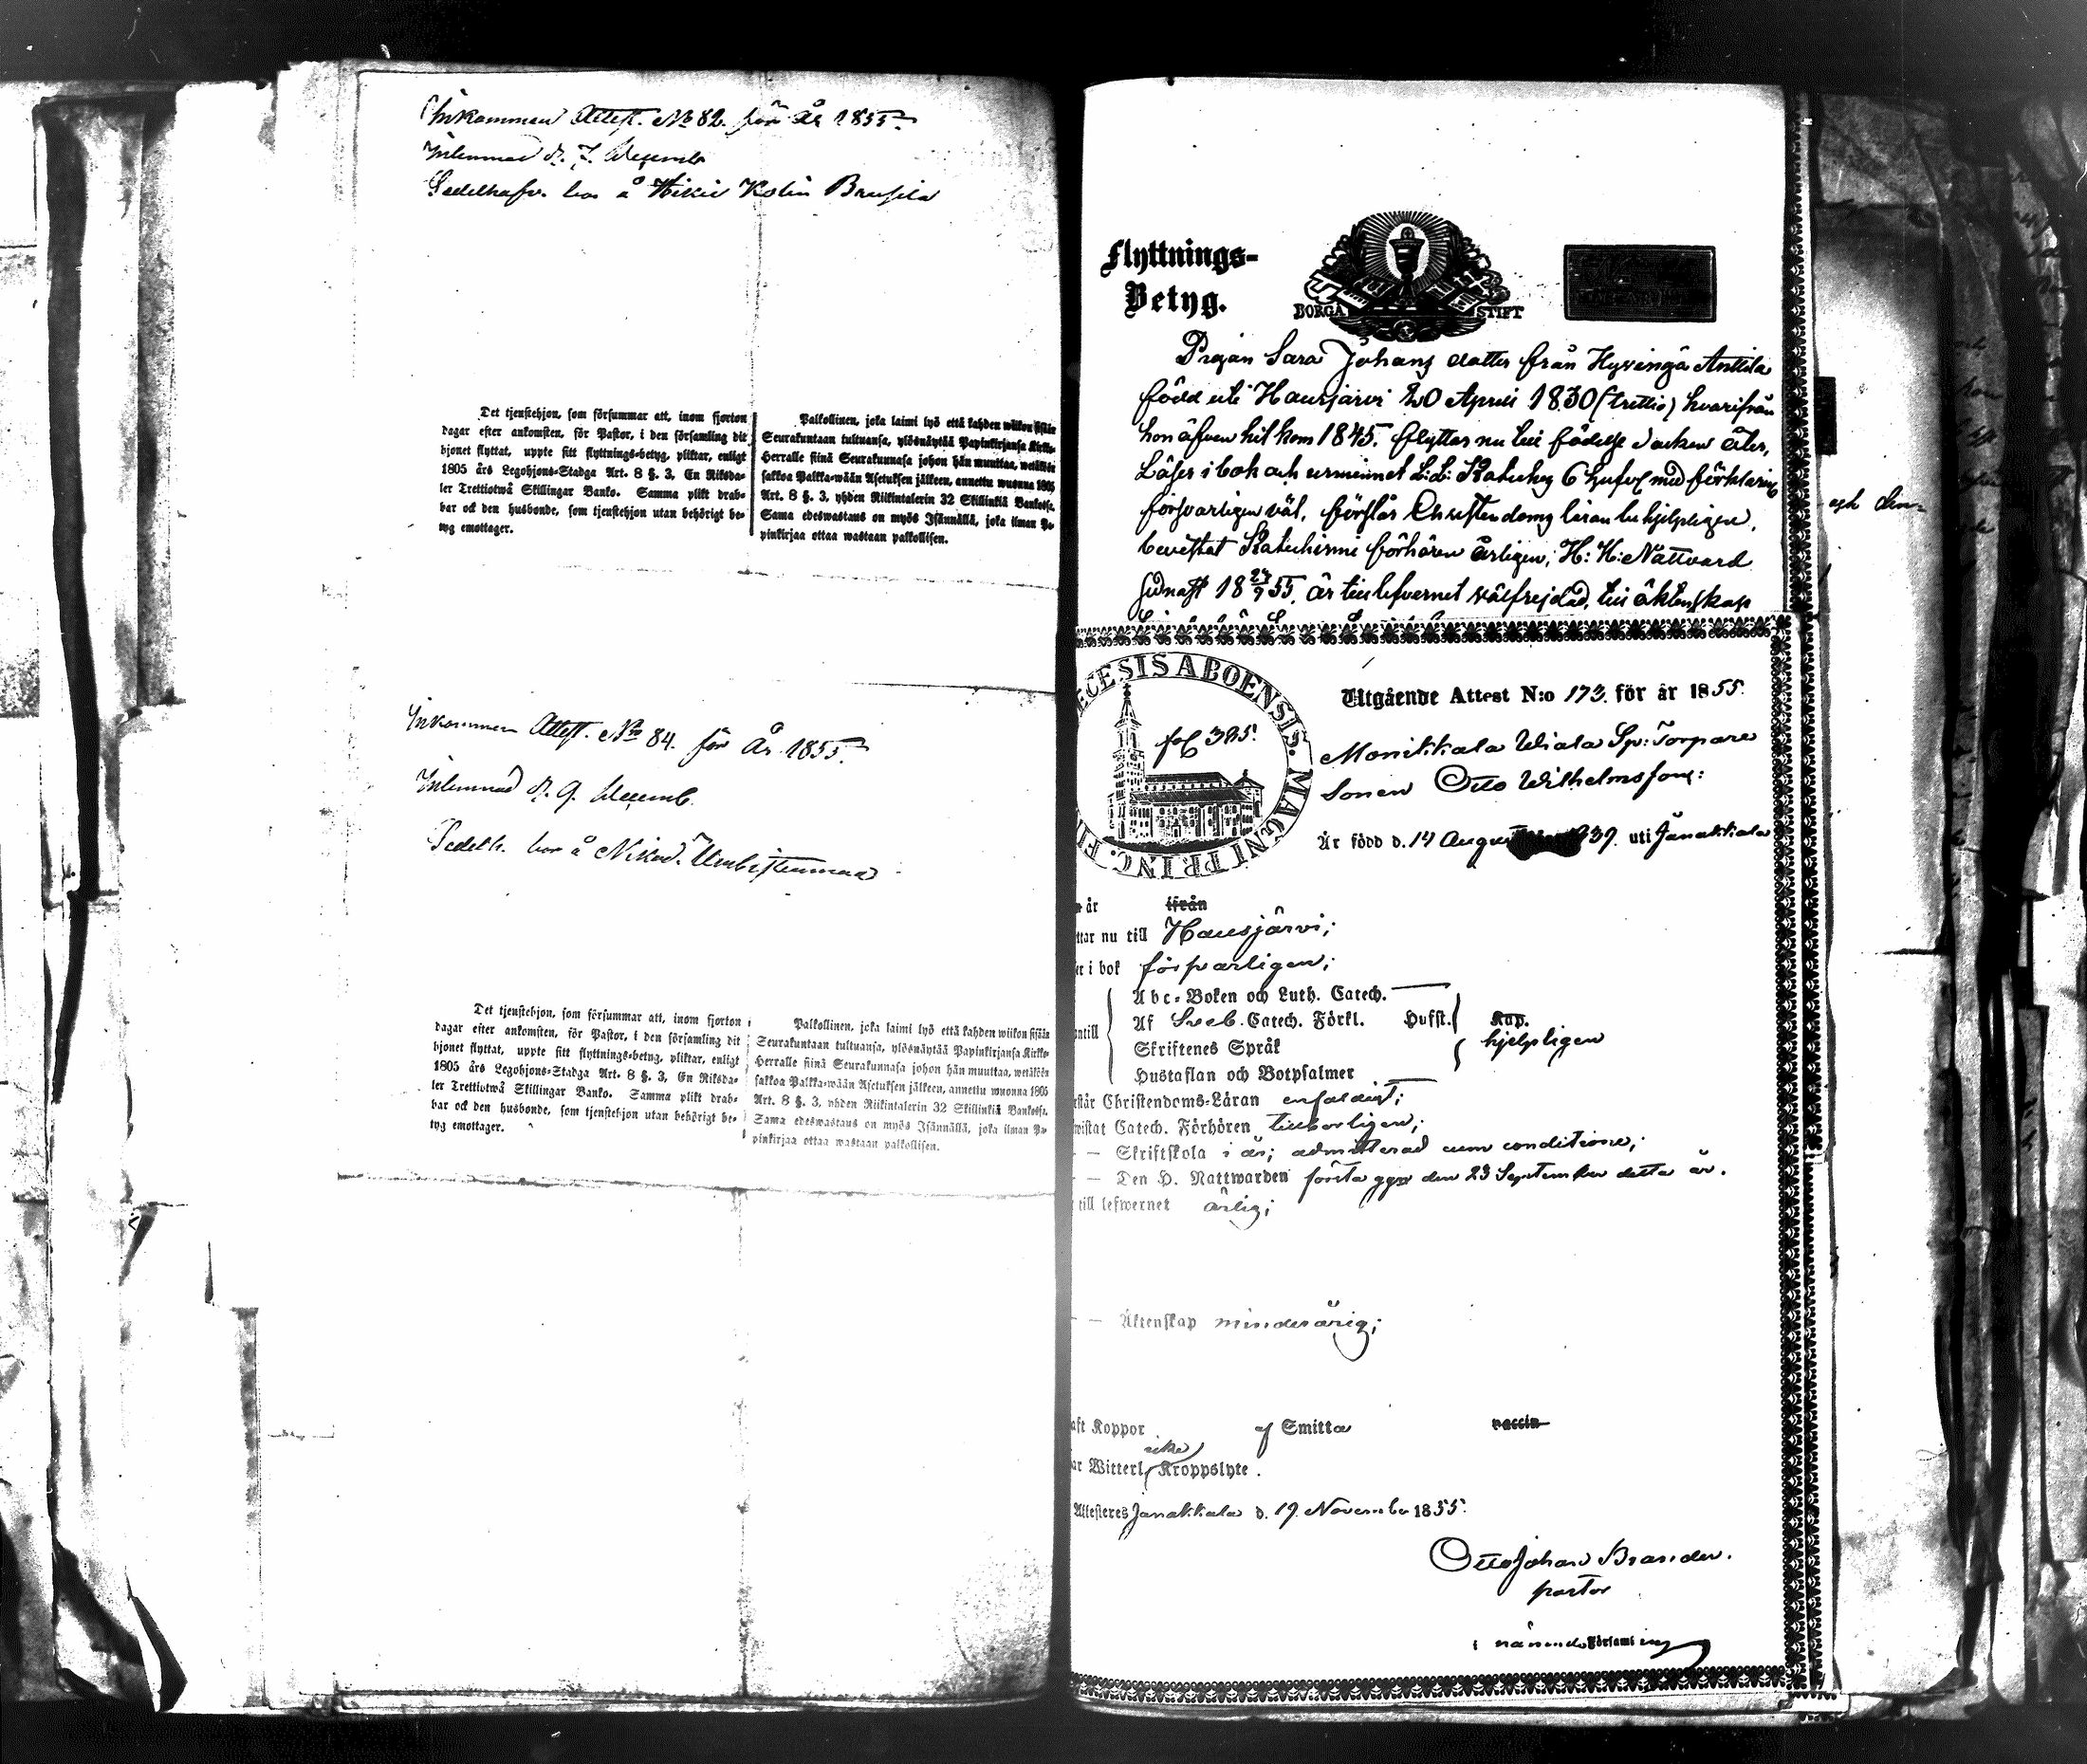 Inkommen Attest. No 82. för År 1855.
Inlemnad d. 7. Decemb
Sedelhafv. bor å Hikiä Kolin
Det tjenstehjon, som försummar att, inom fjorton
dagar efter ankomsten, för Pastor, i den församling dit
hjonet flyttat, uppte sitt flyttnings-betyg, pliktar, enligt
1805 års Legohjons-Stadga Art. 8 §. 3, En Riksda-
ler Trettiotwå Skillingar Banko. Samma plikt drab-
bar ock den husbonde, som tjenstehjon utan behörigt be-
tyg emottager.
Palkollinen, joka laimi lyö että kahden wiikon sisään
Seurakuntaan tultuansa, ylösnäytää Papinkirjansa Kirkko-
Herralle siinä Seurakunnasa johon hän muuttaa, wetäköön
sakkoa Palkka-wään Asetuksen jälkeen, annettu wuonna 1805
Art. 8 §. 3, yhden Riikintalerin 32 Skillinkiä Bankossa.
Sama edeswastaus on myös Isännällä, joka ilman Pa-
pinkirjaa ottaa wastaan palkollisen.
Inkommen Attest. No 84. för År 1855.
Inlemnad d. 9. Decemb.
Sedelh. bor å
Det tjenstehjon, som försummar att, inom fjorton
dagar efter ankomsten, för Pastor, i den församling dit
hjonet flyttat, uppte sitt flyttnings-betyg, pliktar, enligt
1805 års Legohjons-Stadga Art. 8 §. 3, En Riksda-
ler Trettiotwå Skillingar Banko. Samma plikt drab-
bar ock den husbonde, som tjenstehjon utan behörigt be-
tyg emottager.
Palkollinen, joka laimi lyö että kahden wiikon sisään
Seurakuntaan tultuansa, ylösnäytää Papinkirjansa Kirkko-
Herralle siinä Seurakunnasa johon hän muuttaa, wetäköön
sakkoa Palkka-wään Asetuksen jälkeen, annettu wuonna 1805
Art. 8 §. 3, yhden Riikintalerin 32 Skillinkiä Bankossa.
Sama edeswastaus on myös Isännällä, joka ilman Pa-
pinkirjaa ottaa wastaan palkollisen.
Flyttnings-
Betyg.
BORGÅ STIFT
Pigan Sara Johans dotter från Hyvingä Anttila
född uti Hausjärvi 20 April 1830 (trettio) hvarifrån
hon äfven hit kom 1845. flyttar nu till födelse socken åter,
Läser i bok och utur minnet L: L: Kateches 6 Hufvs med förklaring
försvarligen väl, förstår Christendoms läran behjelpligen,
bevistat Katechismi förhören årligen, H: H: Nattvard
sednast 18 24/9 55. är till lefvernet välfrejdad, till äktenskap
och den-
DIOECESIS ABOENSIS. MAGNI PRINC. FI
fol 385.
Utgående Attest N:o 173. för år 1855.
Monikkala Wiala Sp: Torpare
Sonen Otto Wilhelmsson:
Är född d. 14 Augusti 1839. uti Janakkala
år ifrån
ttar nu till Hausjärvi;
er i bok försvarligen;
Abc-Boken och Luth. Catech.
Af Sveb. Catech. Förkl. Hufst. Kap.
antill Skriftenes Språk hjelpligen
Hustaflan och Botpsalmer
rstår Christendoms-Läran enfaldigt;
wistat Catech. Förhören tillbörligen;
- - Skriftskola i år; admitterad cum conditione;
- - Den H. Nattwarden första ggn den 23 September detta år.
till lefwernet ärlig;
- - Äktenskap minderårig;
aft Koppor af Smitta vaccin
icke
ar Witterl. Kroppslyte.
Attesteres Janakkala d. 19. November 1855.
Otto Johan Brander.
pastor
i nämnde Församl ing